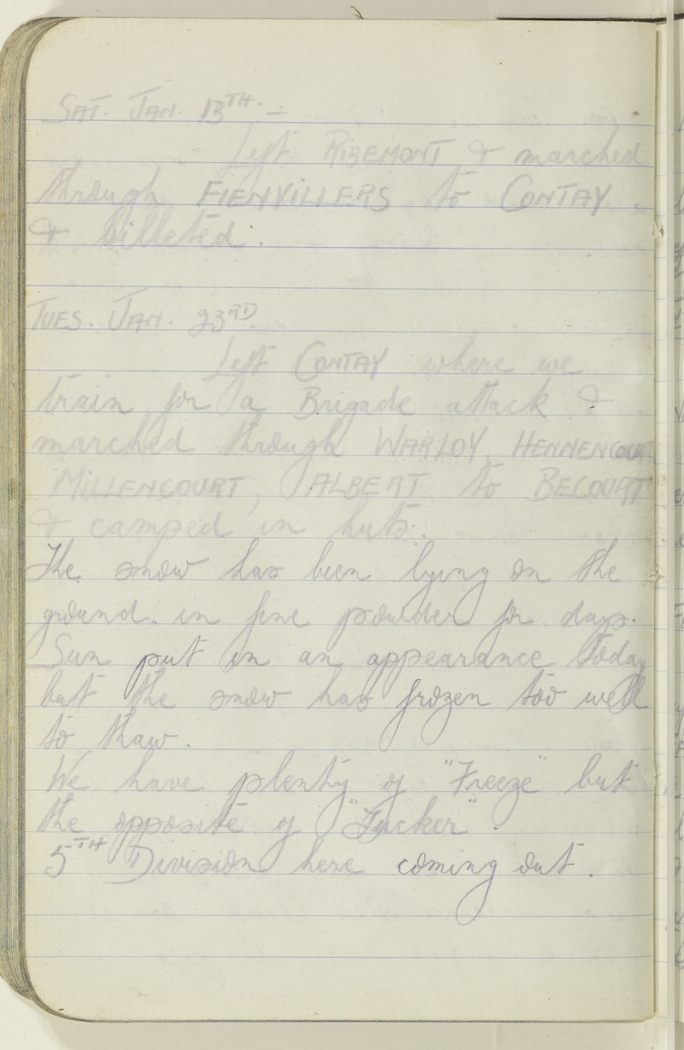 SAT. JAN. 13TH. —
Left RIBEMONT & marched
through FIENVILLERS to CONTAY.
& billeted.
TUES. JAN. 23RD.
Left CONTAY where we
train for a Brigade attack &
marched through WARLOY, HENNENCOURT
MILLENCOURT, ALBERT to BECOURT
& camped in huts.
The snow has been lying on the
ground. in fine powder for days.
Sun put in an appearance today
but the snow has frozen too well
to thaw.
We have plenty of "Freeze" but
the opposite of "Tucker".
5TH Division here coming out.